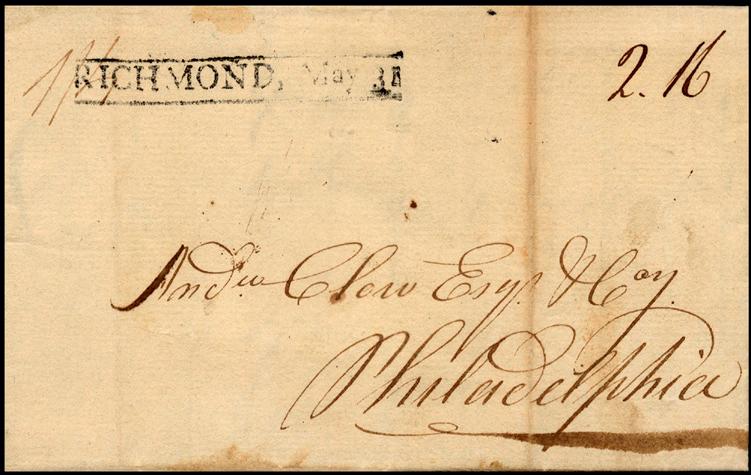 RICHMOND, May 31
2. 16
Andw Clow Esqr. & Coy.
Philadelphia